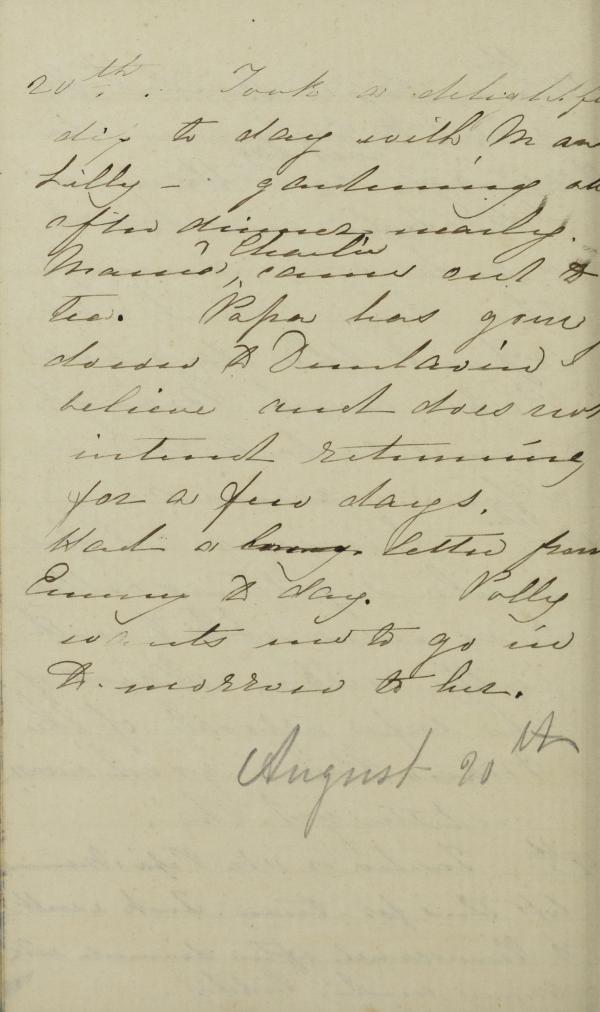 20th. Took a delightfu
dip to day with M an
Lilly - gardening all
after dinner nearly.
Charlie
Mama, came out to
tea. Papa has gone
down to Dunlavin I
believe and does not
intend returning
for a few days.
Had a letter from
Emmy to day. Polly
wants me to go in
to-morrow to her.
August 20th